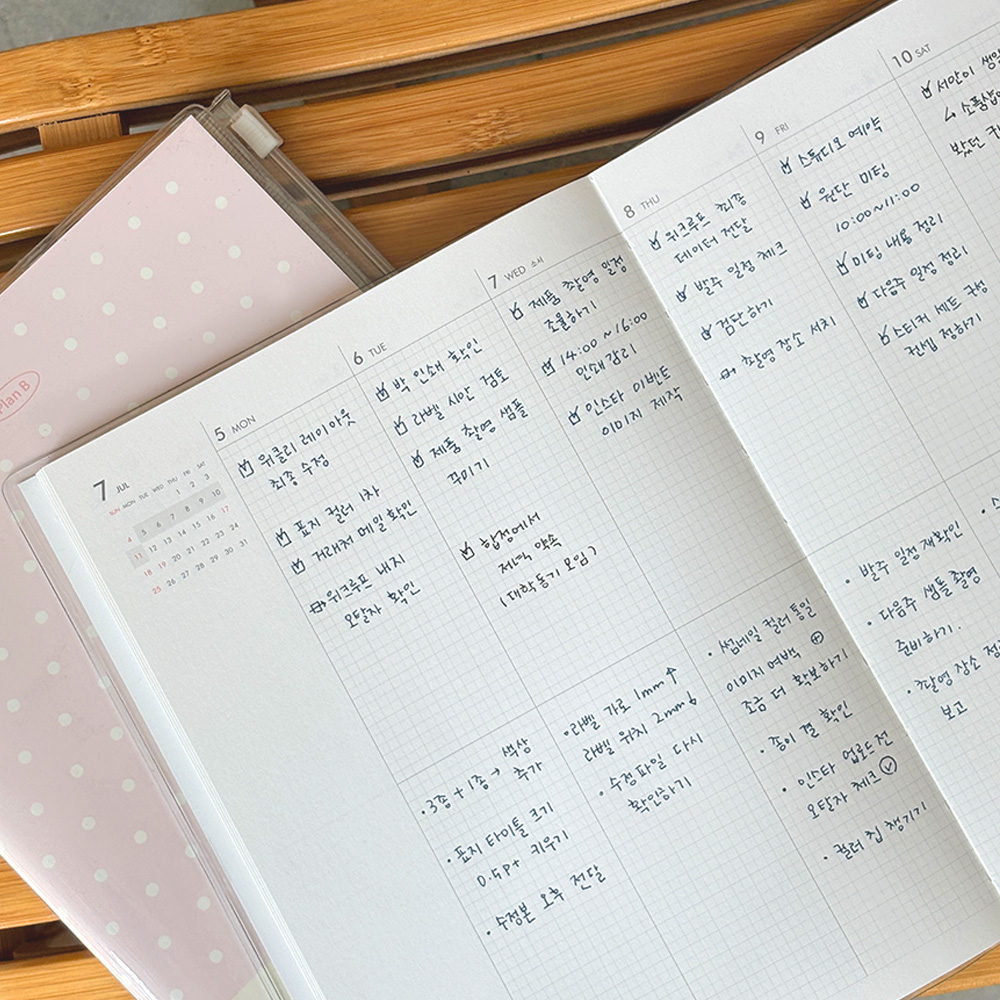 Plan B
7 JUL
SUN MON TUE WED THU FRI SAT
1 2 3
4 5 6 7 8 9 10
11 12 13 14 15 16 17
18 19 20 21 22 23 24
25 26 27 28 29 30 31
5 MON
위클리 레이아웃
최종 수정
표지 컬러 1차
거래처 메일 확인
위크루프 내지
오탈자 확인
• 3종 + 1종 → 색상
추가
• 표지 타이틀 크기
0.5pt 키우기
• 수정본 오후 전달
6 TUE
박 인쇄 확인
라벨 시안 검토
제품 촬영 샘플
꾸미기
합정에서
저녁 약속
(대학동기 모임)
• 라벨 가로 1mm↑
라벨 위치 2mm↓
• 수정파일 다시
확인하기
7 WED 소서
제품 촬영 일정
조율하기
14:00~16:00
인쇄감리
인스타 이벤트
이미지 제작
• 썸네일 컬러 통일
이미지 여백 ⊕
조금 더 확보하기
• 종이 결 확인
• 인스타 업로드 전
오탈자 체크
• 컬러 칩 챙기기
8 THU
위크루프 최종
데이터 전달
발주 일정 체크
검단하기
촬영 장소 서치
• 발주 일정 재확인
• 다음주 샘플 촬영
준비하기.
• 촬영 장소
보고
9 FRI
스튜디오 예약
원단 미팅
10:00~11:00
미팅 내용 정리
다음주 일정 정리
스티커 세트 구성
컨셉 정하기
10 SAT
서안이
↳ 소품샵
봤던